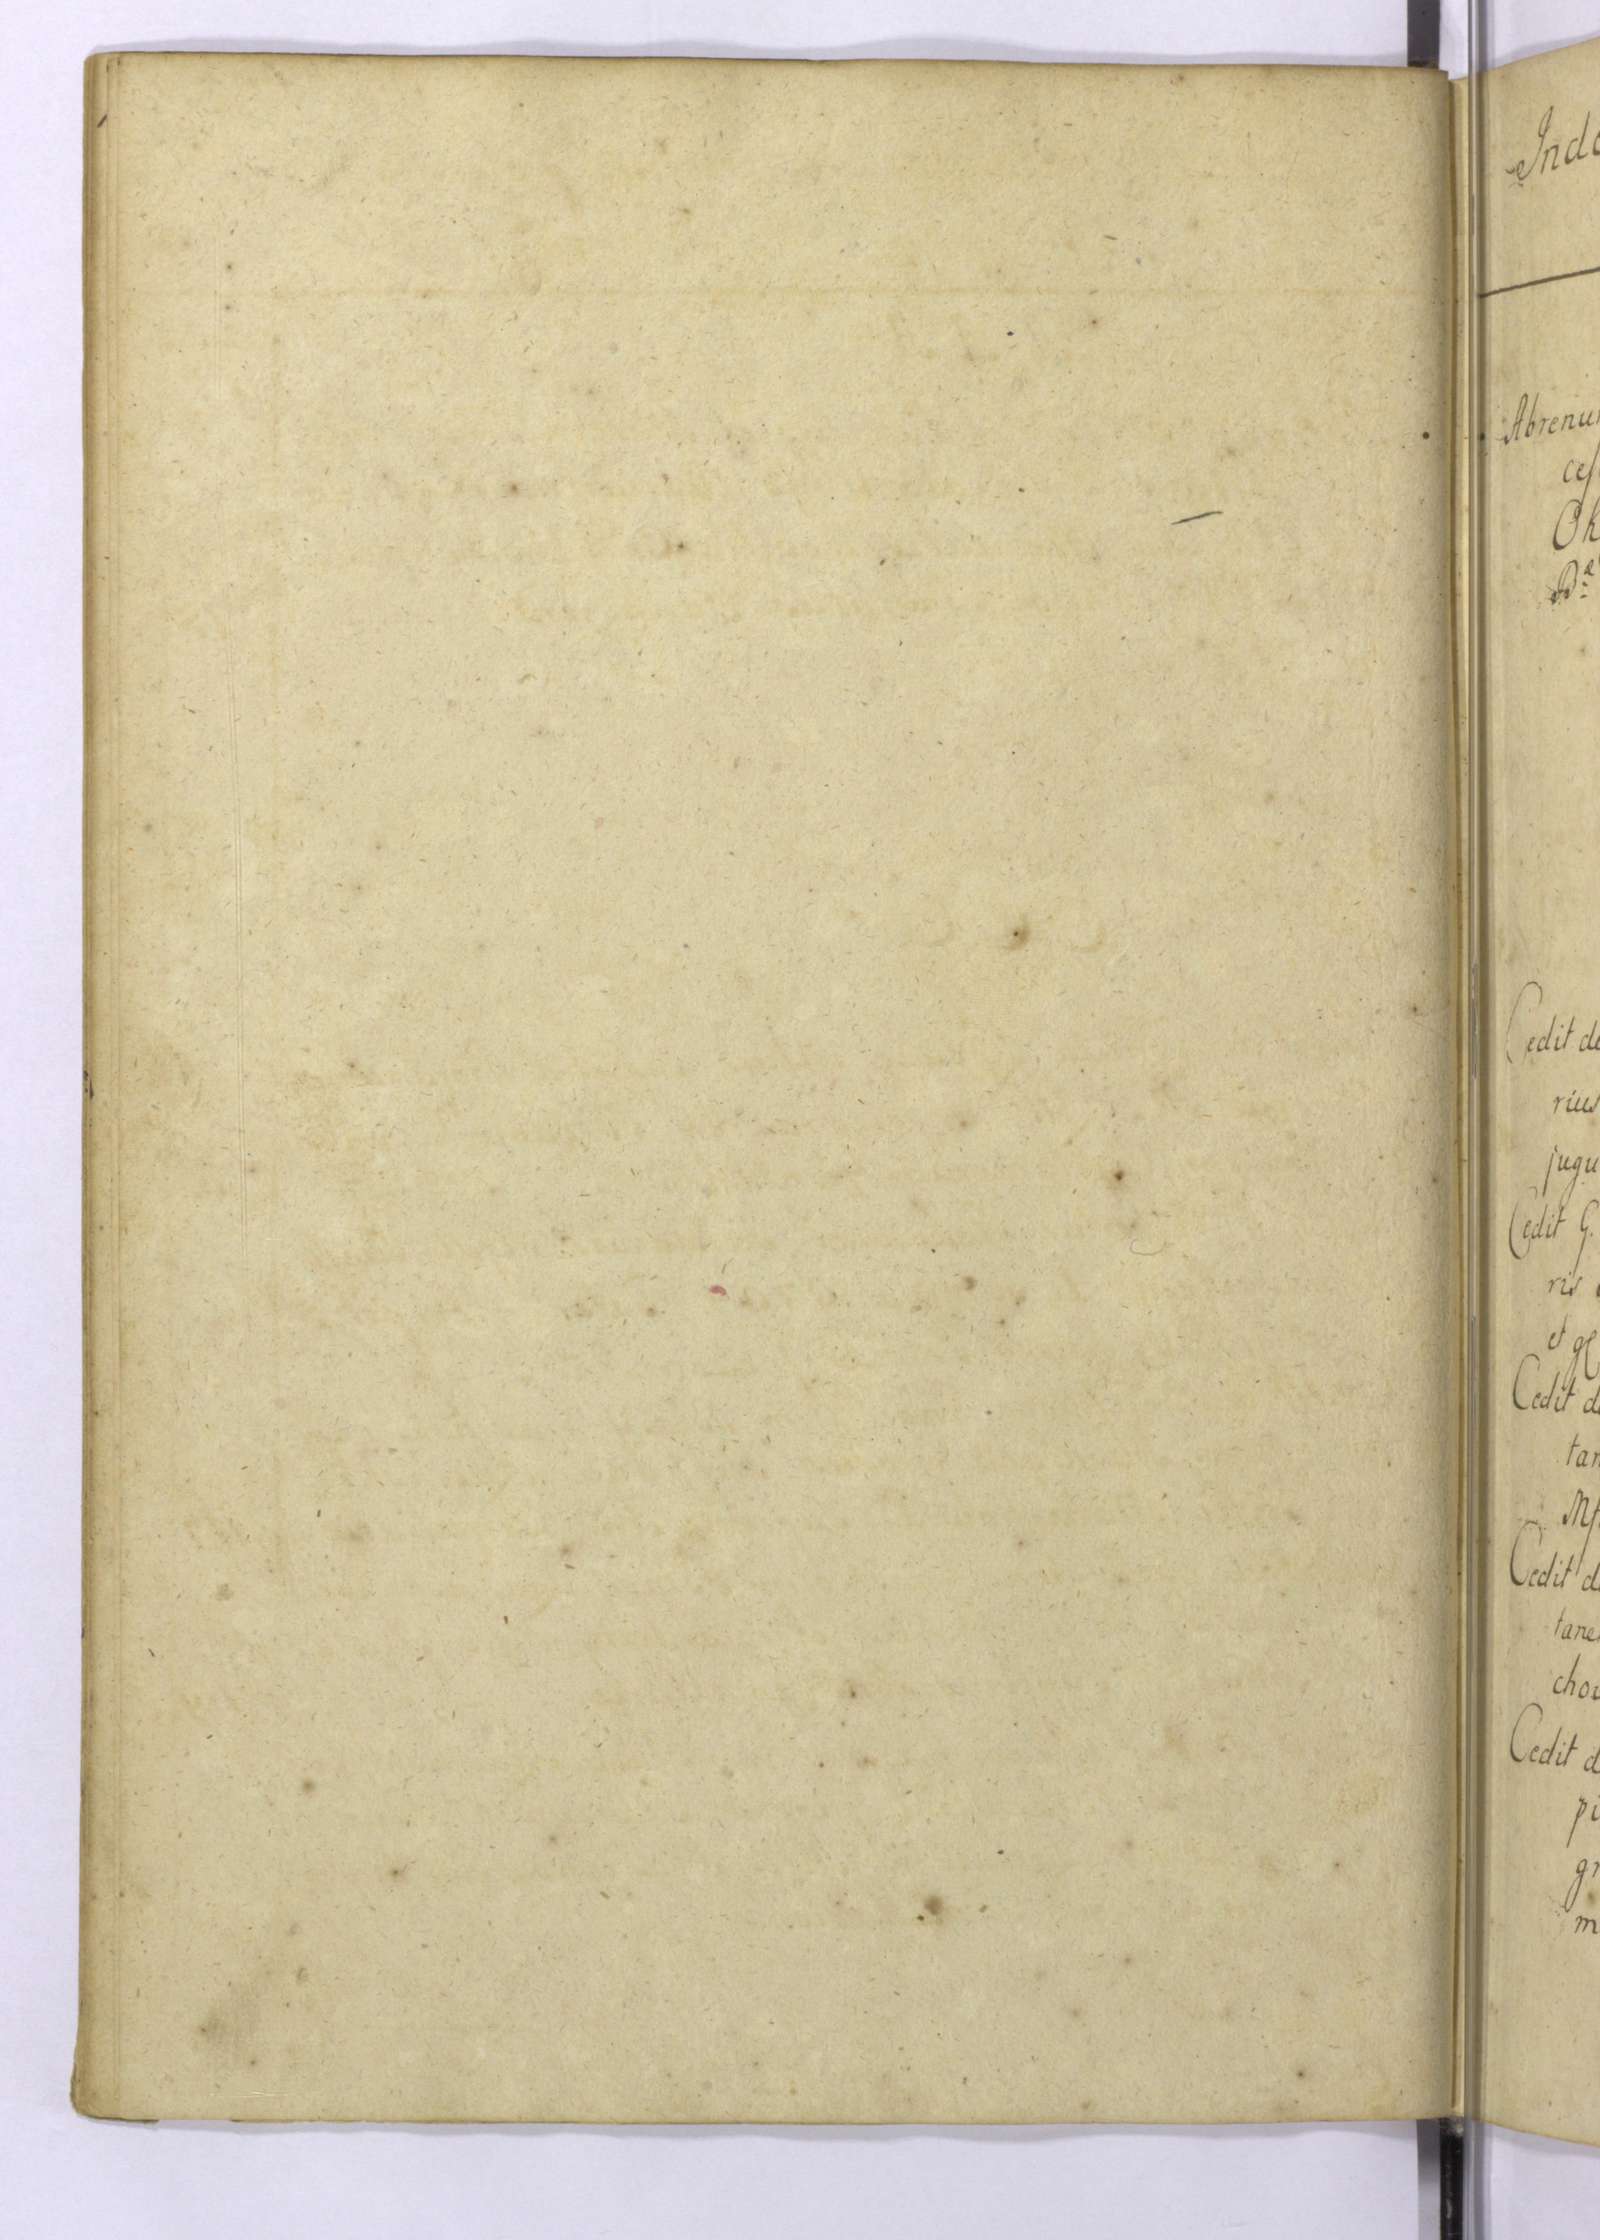 Ind
Abrenu
ces
Ok
Cedit d
rius
jugu
Cedit G.
ris
et
Cedit d
tan
Cedit d
tane
chou
Cedit d
pi
gr
m